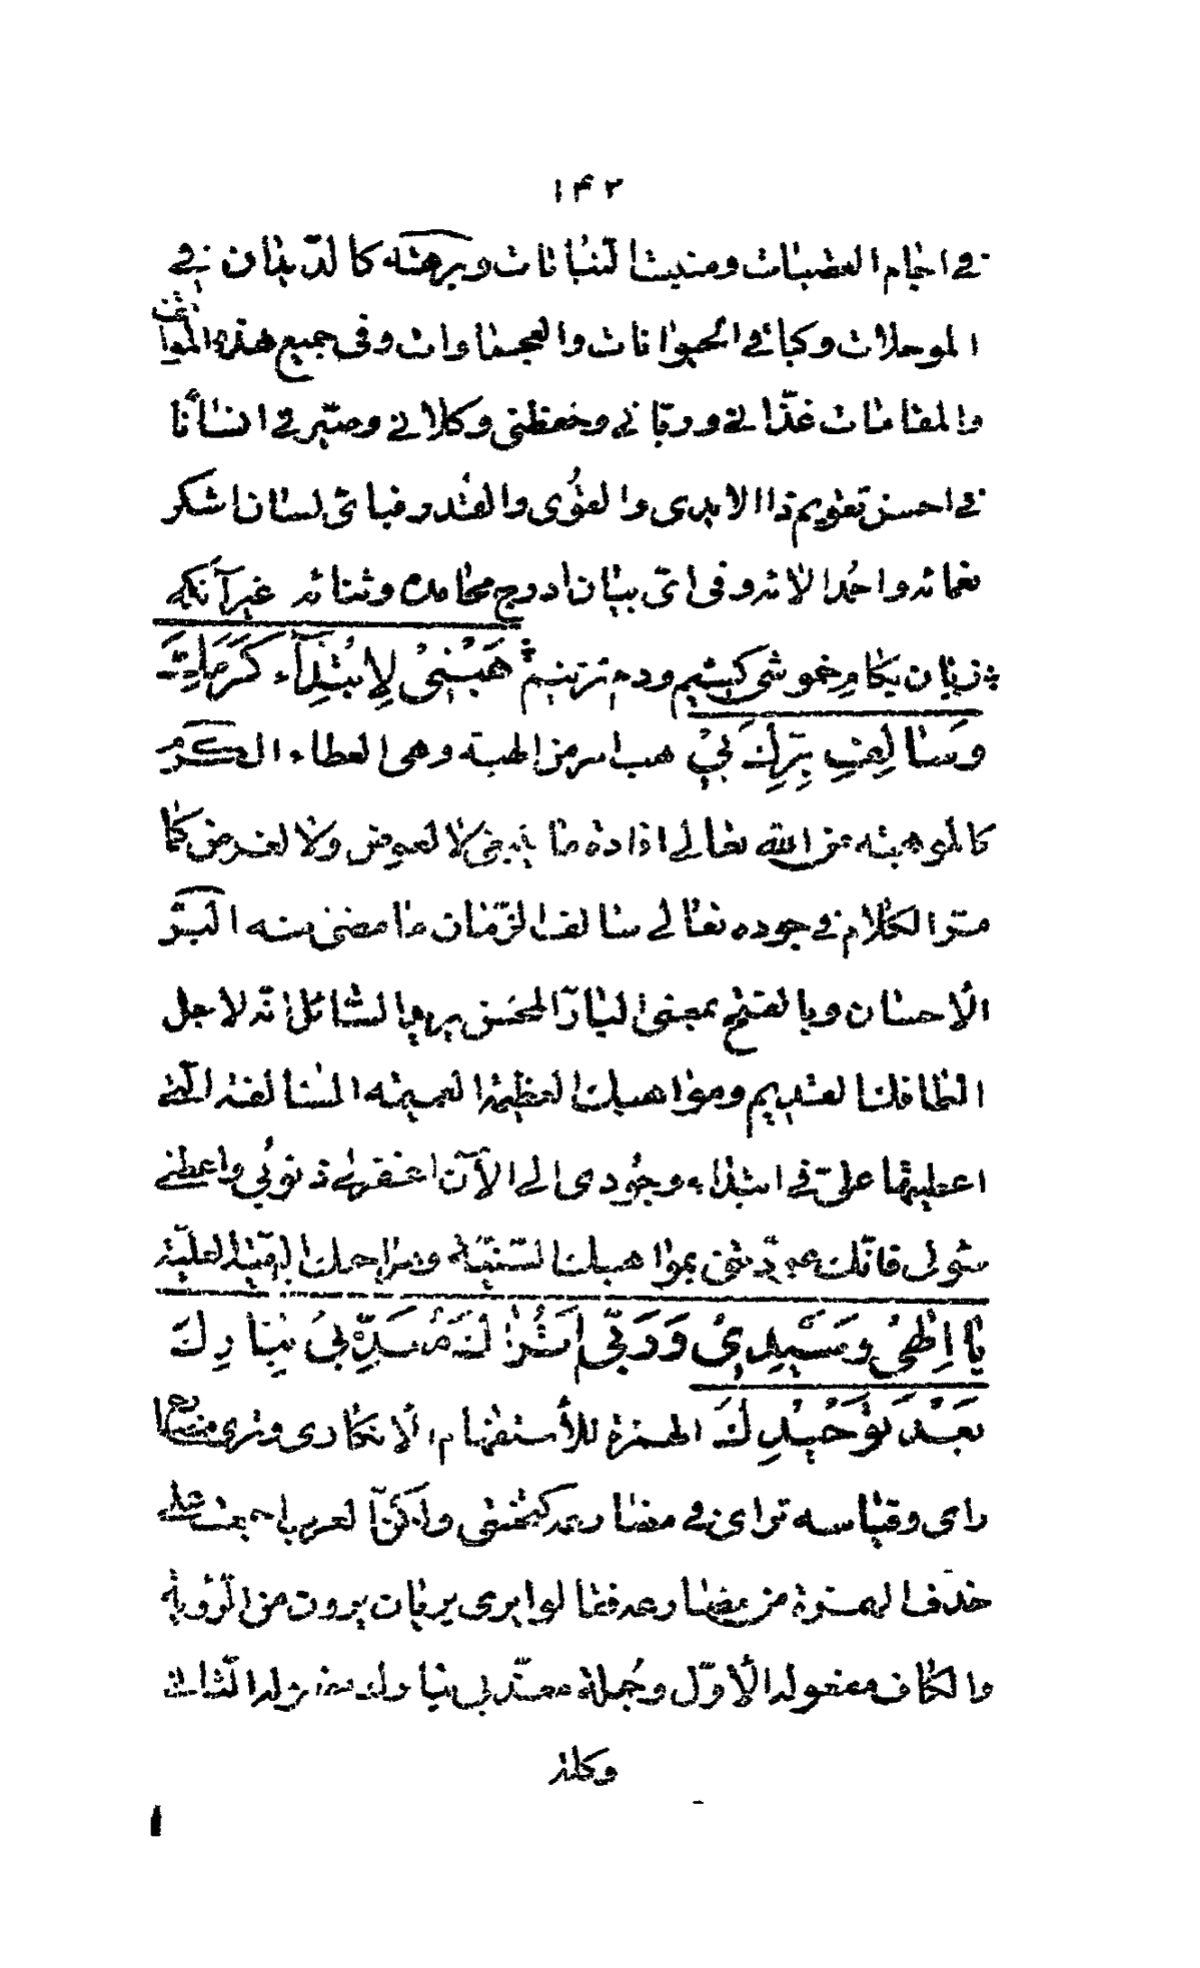 ۱۴۲
في اجام القصبات ومنبت النباتات وبرهة كالديدان في
الموحلات وكبائي الحيوانات والعجماوات وفي جميع هذه المواقف
والمقامات غذاني ورباني وحفظني وكلاني وصيرني انسانا
في احسن تقويم ذا الايدى والقوى والقدر فباى لسان اشكر
نعمائه واحد الائه وفى اى بيان ادرج محامده وثنائه غير آنكه
زبان بكام خموشى كشيم ودم نزنيم هَبْنِي لِابْتِدَآءِ كَرَمِكَ
وَسَالِفِ بِرِّكَ بِي هب امر من الهبة وهى العطاء الكرم
كالموهبة من الله تعالى افادة ما ينبغى لا لعوض ولا لغرض كما
مر الكلام في جوده تعالى سالف الزمان ما مضى منه البر
الاحسان وبالفتح بمعنى البار المحسن يريد السائل انه لاجل
الطافك القديم ومواهبك العظيمة العميمة السالفة التى
اعطيتها على في ابتداء وجودى الى الآن اغفر لي ذنوبي واعطني
سولى فانك عودتني بمواهبك السنية ومراحمك البهية العلية
يَا اِلٰهِي وَسَيِّدِي وَرَبِّي اَتُرَاكَ مُعَذِّبِي بِنَارِكَ
بَعْدَ تَوْحِيدِكَ الهمزة للأستفهام الانكارى وترى مضارع
راى وقياسه تراى في مضارعه كيخشى ولكن العرب اجمعت على
حذف الهمزة من مضارعه فقالوا يرى يريان يرون من الرؤية
والكاف مفعوله الاول وجملة معذبي بنارك مفعوله الثانى
وكلمة